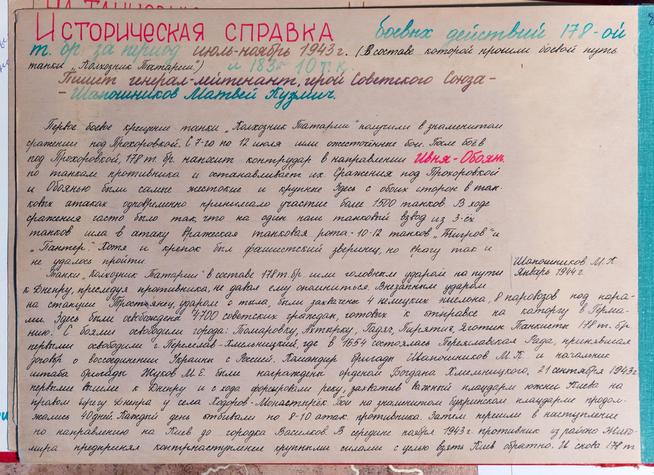 Историческая справка боевых действий 178-ой
т. бр. за период июль-ноябрь 1943 г. (В составе которой прошли боевой путь
танки „Колхозник Татарии") и 183 10 т.к.
Пишет генерал-лейтенант, герой Советского Союза-
- Шапошников Матвей Кузмич.
Первое боевое крещение танки „Колхозник Татарии" получили в знаменитом
сражении под Прохоровкой. С 7-го по 12 июля шли ожесточённые бои. После боёв
под Прохоровкой, 178 т. бр. наносит контрудар в направлении Ивня-Обоянь
по танкам противника и останавливает их. Сражения под Прохоровкой
и Обоянью были самые жестокие и крупные. Здесь с обоих сторон в тан-
ковых атаках одновременно принимало участие более 1500 танков. В ходе
сражения часто было так, что на один наш танковый взвод из 3-ёх
танков шла в атаку вражеская танковая рота - 10-12 танков „Тигров" и
„Пантер". Хотя и крепок был фашистский зверинец, но врагу так и
не удалось пройти
Шапошников М. К
Январь 1944 г.
Танки „Колхозник Татарии" в составе 178 т. бр. шли головным ударом на пути
к Днепру, преследуя противника, не давая ему опомниться. Внезапным ударом
на станции Тростянец, ударом с тыла, были захвачены 4 немецких эшелона, 8 паровозов под пара-
ми. Здесь были освобождены 4700 советских граждан, готовых к отправке на каторгу в Герма-
нию. С боями освободили города: Томаровку, Ахтырку, Гадяч, Пирятин, Яготин. Танкисты 178 т. бр.
первыми освободили г. Переяслав-Хмельницкий, где в 1654 состоялась Переяславская Рада, принявшая
договор о воссоединении Украины с Россией. Командир бригады Шапошников М. К и начальник
штаба бригады Жуков М. Е. были награждены орденом Богдана Хмельницкого, 21 сентября 1943 г.
первыми вышли к Днепру и с хода форсировали реку, захватив важный плацдарм южнее Киева на
правом берегу Днепра у села Ходоров-Монастырёк. Бои на знаменитом букринском плацдарме продол-
жались 40 дней. Каждый день отбивали по 8-10 атак противника. Затем перешли в наступление
по направлению на Киев до городка Васильков. В середине ноября 1943 г. противник из района Жито-
мира предпринял контрнаступление крупными силами с целью взять Киев обратно. И снова 178 т.